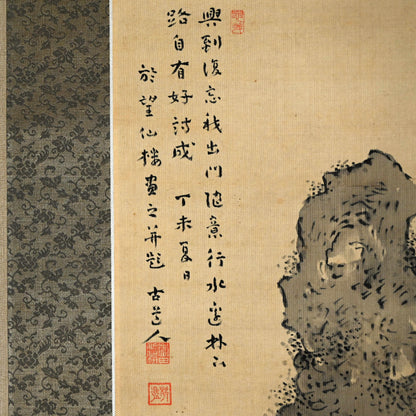 興到復忘我出門隨意行水邊林下
路自有好詩成　丁未夏日
於望仙樓畫之并題　古道人